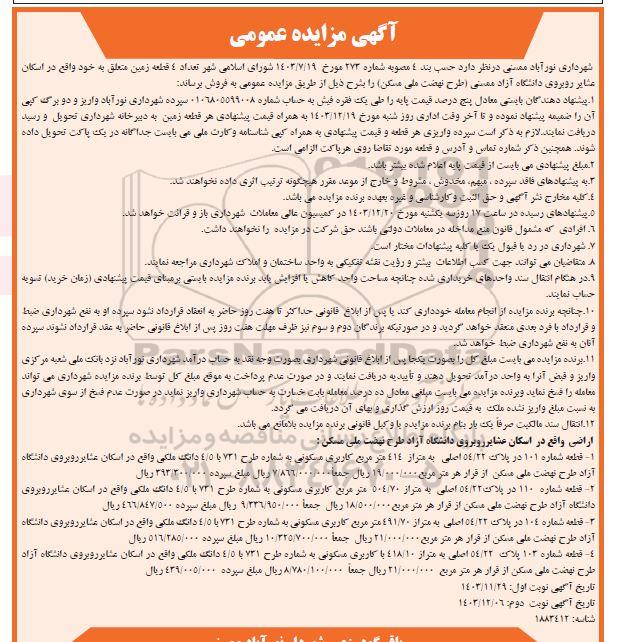 آگهی مزایده عمومی
شهرداری نورآباد ممسنی درنظر دارد حسب بند ۴ مصوبه شماره ۲۷۳ مورخ ۱۴۰۳/۷/۱۹ شورای اسلامی شهر تعداد ۴ قطعه زمین متعلق به خود واقع در اسکان
عشایر روبروی دانشگاه آزاد ممسنی (طرح نهضت ملی مسکن) را بشرح ذیل از طریق مزایده عمومی به فروش برساند:
۱.پیشنهاد دهندگان بایستی معادل پنج درصد قیمت پایه را طی یک فقره فیش به حساب شماره ۰۱۰۶۸۰۵۵۹۹۰۰۸ سپرده شهرداری نورآباد واریز و دو برگ کپی
آن را ضمیمه پیشنهاد نموده و تا آخر وقت اداری روز شنبه مورخ ۱۴۰۳/۱۲/۱۹ به همراه قیمت پیشنهادی هر قطعه زمین به دبیرخانه شهرداری تحویل و رسید
دریافت نمایند.لازم به ذکر است سپرده واریزی هر قطعه و قیمت پیشنهادی به همراه کپی شناسنامه وکارت ملی می بایست جداگانه در یک پاکت تحویل داده
شوند. همچنین ذکر شماره تماس و آدرس و قطعه مورد تقاضا روی هرپاکت الزامی است.
۲.مبلغ پیشنهادی می بایست از قیمت پایه اعلام شده بیشتر باشد.
۳.به پیشنهادهای فاقد سپرده ، مبهم، مخدوش ، مشروط و خارج از موعد مقرر هیچگونه ترتیب اثری داده نخواهند شد.
۴.کلیه مخارج نشر آگهی و حق الثبت وکارشناسی و غیره بعهده برنده مزایده می باشد.
۵.پیشنهادهای رسیده در ساعت ۱۷ روزسه یکشنبه مورخ ۱۴۰۳/۱۲/۲۰ در کمیسیون عالی معاملات شهرداری باز و قرائت خواهد شد.
۶. افرادی که مشمول قانون منع مداخله در معاملات دولتی باشند حق شرکت در مزایده را نخواهند داشت.
۷. شهرداری در رد یا قبول یک یا کلیه پیشنهادات مختار است.
۸. متقاضیان می توانند جهت کسب اطلاعات بیشتر و رؤیت نقشه تفکیکی به واحد ساختمان و املاک شهرداری مراجعه نمایند.
۹.در هنگام انتقال سند واحدهای خریداری شده چنانچه مساحت واحد کاهش یا افزایش یابد برنده مزایده بایستی برمبنای قیمت پیشنهادی (زمان خرید) تسویه
حساب نمایند.
۱۰.چنانچه برنده مزایده از انجام معامله خودداری کند یا پس از ابلاغ قانونی حداکثر تا هفت روز حاضر به انعقاد قرارداد نشود سپرده او به نفع شهرداری ضبط
و قرارداد با فرد بعدی منعقد خواهد گردید و در صورتیکه برندگان دوم و سوم نیز ظرف مهلت هفت روز پس از ابلاغ قانونی حاضر به عقد قرارداد نشوند سپرده
آنان به نفع شهرداری ضبط خواهد شد.
۱۱.برنده مزایده می بایست مبلغ کل را بصورت یکجا پس از ابلاغ قانونی شهرداری بصورت وجه نقد به حساب درآمد شهرداری نورآباد نزد بانک ملی شعبه مرکزی
واریز و فیش آنرا به واحد درآمد تحویل دهند و تأییدیه دریافت نمایند و در صورت عدم پرداخت به موقع مبلغ کل توسط برنده مزایده شهرداری می تواند
معامله را فسخ نماید وبرنده مزایده می بایست مبلغی معادل ده درصد معامله بابت خسارت به حساب شهرداری واریز نماید در صورت عدم فسخ از سوی شهرداری
به نسبت مبلغ واریز نشده ملک به قیمت روز ارزش گذاری و بهای آن دریافت می گردد.
۱۲.انتقال سند مالکیت صرفاً یک بار بنام برنده مزایده یا وکیل قانونی برنده مزایده بلامانع می باشد.
اراضی واقع در اسکان عشایرروبروی دانشگاه آزاد طرح نهضت ملی مسکن :
۱- قطعه شماره ۱۰۱ در پلاک ۵۴/۲۲ اصلی به متراز ۴۱۴ متر مربع کاربری مسکونی به شماره طرح ۷۳۱ با ۴/۵ دانگ ملکی واقع در اسکان عشایرروبروی دانشگاه
آزاد طرح نهضت ملی مسکن از قرار هر متر مربع۱۹/۰۰۰/۰۰۰ ریال جمعاً۷/۸۶۶/۰۰۰/۰۰۰ ریال مبلغ سپرده ۳۹۳/۳۰۰/۰۰۰ ریال
۲- قطعه شماره ۱۱۰ در پلاک۵۴/۲۲ اصلی به متراز ۵۰۴/۷۰ متر مربع کاربری مسکونی به شماره طرح ۷۳۱ با ۴/۵ دانگ ملکی واقع در اسکان عشایرروبروی
دانشگاه آزاد طرح نهضت ملی مسکن از قرار هر متر مربع۱۸/۵۰۰/۰۰۰ ریال جمعاً ۹/۳۳۶/۹۵۰/۰۰۰ ریال مبلغ سپرده ۴۶۶/۸۴۷/۵۰۰ ریال
۳- قطعه شماره ۱۰۴ در پلاک ۵۴/۲۲ اصلی به متراز ۴۹۱/۷۰ متر مربع کاربری مسکونی به شماره طرح ۷۳۱ با ۴/۵ دانگ ملکی واقع در اسکان عشایرروبروی دانشگاه
آزاد طرح نهضت ملی مسکن از قرار هر متر مربع۲۱/۰۰۰/۰۰۰ ریال جمعاً ۱۰/۳۲۵/۷۰۰/۰۰۰ ریال مبلغ سپرده ۵۱۶/۲۸۵/۰۰۰ ریال
۴- قطعه شماره ۱۰۳ پلاک ۵۴/۲۲ اصلی به متراز ۴۱۸/۱۰ با کاربری مسکونی به شماره طرح ۷۳۱ با ۴/۵ دانگ ملکی واقع در اسکان عشایرروبروی دانشگاه آزاد
طرح نهضت ملی مسکن از قرار هر متر مربع ۲۱/۰۰۰/۰۰۰ ریال جمعاً ۸/۷۸۰/۱۰۰/۰۰۰ ریال مبلغ سپرده ۴۳۹/۰۰۵/۰۰۰ ریال
تاریخ آگهی نوبت اول: ۱۴۰۳/۱۱/۲۹
تاریخ آگهی نوبت دوم: ۱۴۰۳/۱۲/۰۶
شناسه: ۱۸۸۳۴۱۲